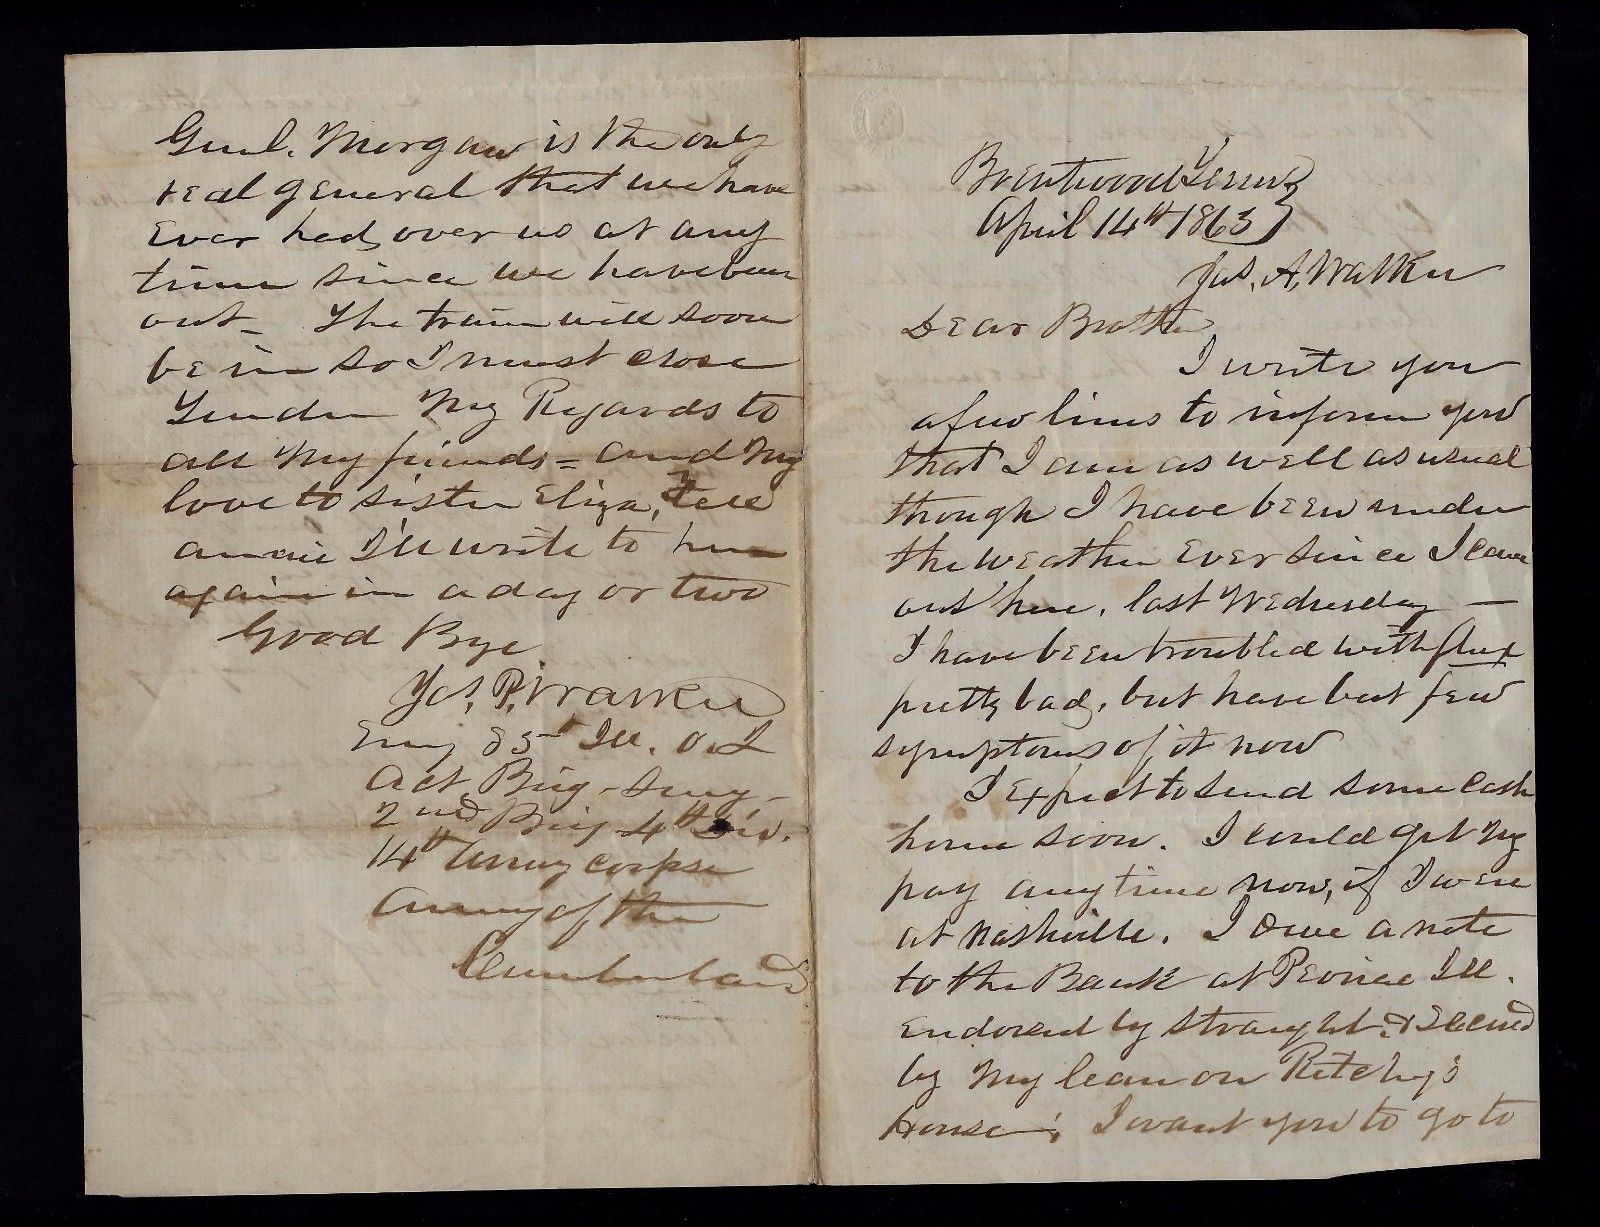 Brentwood Tenn
April 14th 1863
Jas. A. Walker
Dear Brother
I write you
a few lines to inform you
that I am as well as usual
though I have been under
the weather ever since I came
out here, last Wednesday —
I have been troubled with flux
pretty bad, but have but few
symptoms of it now
I expect to send some cash
home soon. I could get my
pay any time now, if I were
at Nashville. I owe a note
to the Bank at Peoria Ill.
endorsed by Straught & Secured
by my lean on Ritchey's
House; I want you to go to
Genl. Morgan is the only
real general that we have
ever had, over us at any
time since we have been
out – The train will soon
be in so I must close
Tender My Regards to
all My friends = and My
love to sister Eliza, tell
annie I'll write to her
again in a day or two
Good Bye
Jas. P. Walker
Surg 85th Ill. V. I.
Act. Brig – Surg –
2nd Brig 4th Div.
14th Army Corpse
Army of the
Cumberland